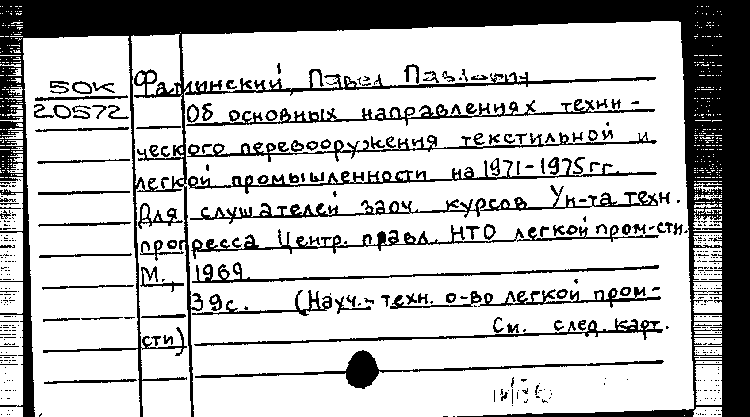 50К
20572
Фаминский, Павел Павлович
Об основных направлениях техни-
ческого перевооружения текстильной и
легкой промышленности на 1971-1975 гг.
Для слушателей заоч. курсов Ун-та техн.
прогресса Центр. правл. НТО легкой пром-сти.
М., 1969.
39с. (Науч.-техн. о-во легкой пром-
сти)
См. след. карт.